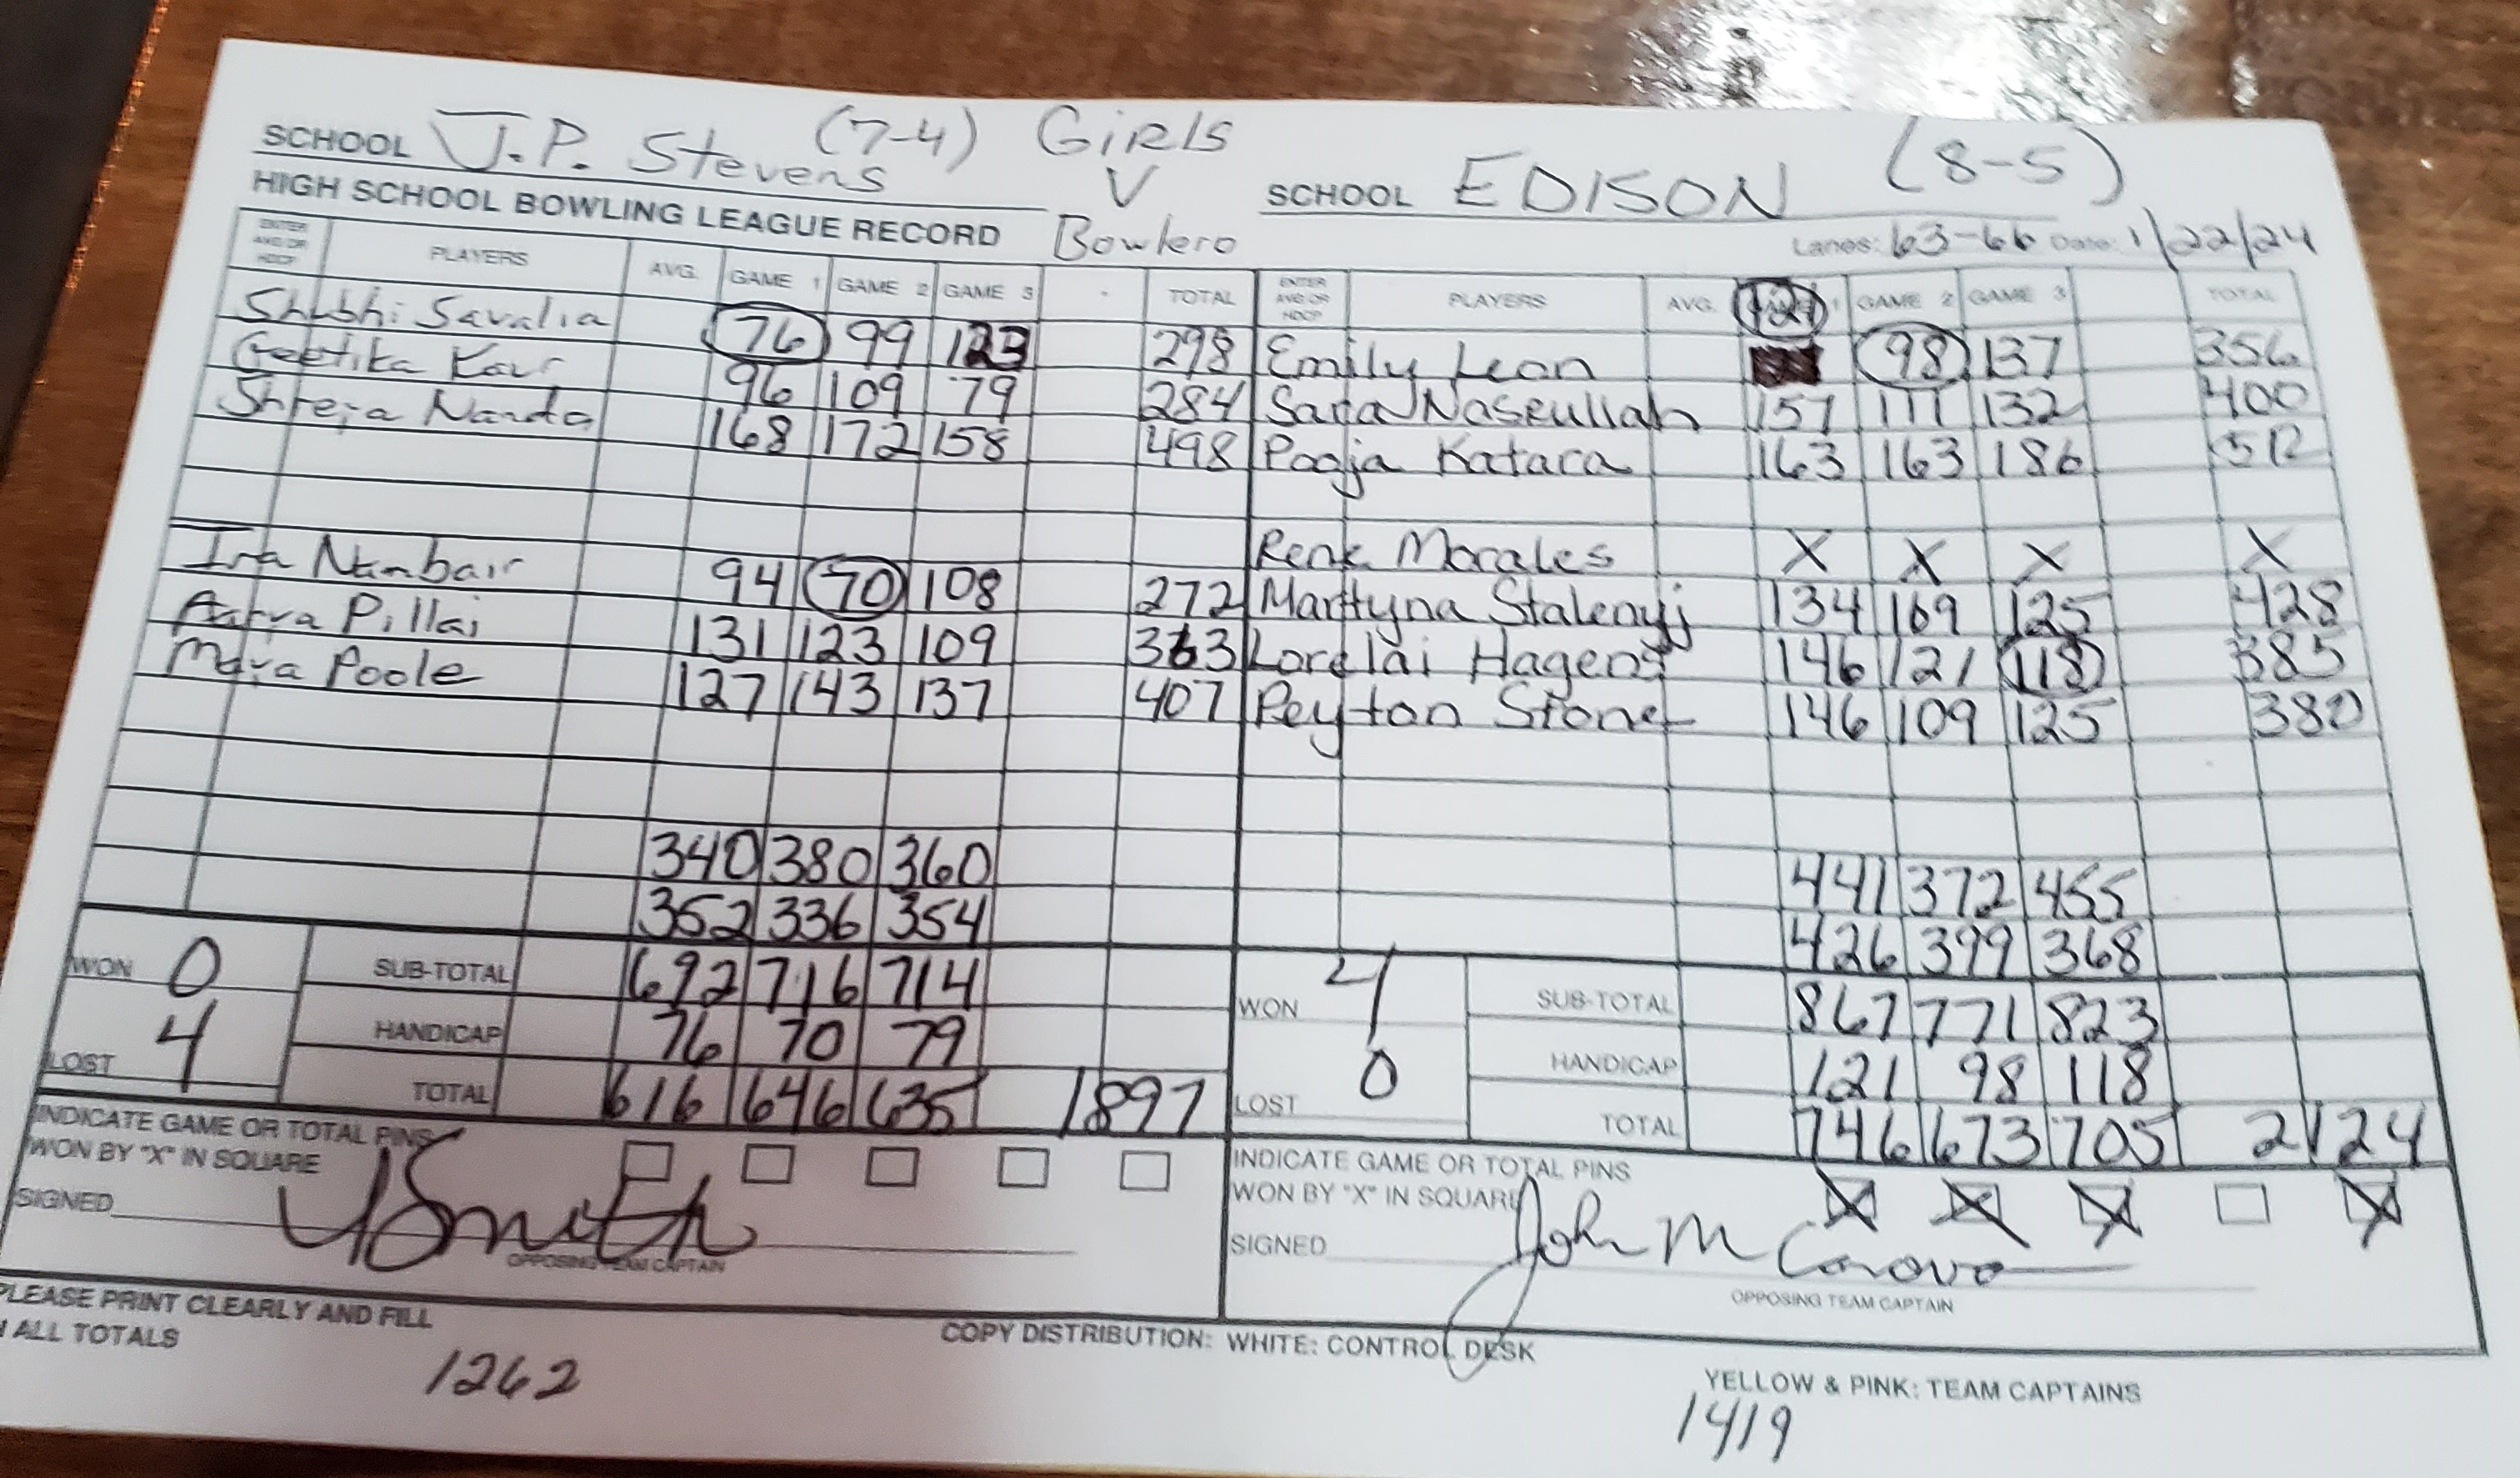 SCHOOL J.P. Stevens (7-4) GIRLS
V
SCHOOL EDISON (8-5)
HIGH SCHOOL BOWLING LEAGUE RECORD Bowlero
Lanes: 63-66 Date: 1/22/24
ENTER AVG OR HDCP PLAYERS AVG. GAME 1 GAME 2 GAME 3 TOTAL
Shubhi Savalia 76 99 123 298
Geetika Kaur 96 109 79 284
Shreja Nanda 168 172 158 498
Ira Nambair 94 70 108 272
Aarva Pillai 131 123 109 363
Maya Poole 127 143 137 407
340 380 360
352 336 354
WON 0
LOST 4
SUB-TOTAL 692 716 714
HANDICAP 76 70 79
TOTAL 616 646 635 1897
INDICATE GAME OR TOTAL PINS
WON BY "X" IN SQUARE
SIGNED
OPPOSING TEAM CAPTAIN
ENTER AVG OR HDCP PLAYERS AVG. 121 1 GAME 2 GAME 3 TOTAL
Emily Leon 98 137 356
Sara Nasrullah 157 111 132 400
Pooja Katara 163 163 186 512
Morales X X X X
Marttyna Stalenyj 134 169 125 428
Lorelai Hagens 146 121 118 385
Peyton Stoner 146 109 125 380
441 372 455
426 399 368
WON 4
LOST 0
SUB-TOTAL 867 771 823
HANDICAP 121 98 118
TOTAL 746 673 705 2124
INDICATE GAME OR TOTAL PINS
WON BY "X" IN SQUARE
SIGNED John M
OPPOSING TEAM CAPTAIN
PLEASE PRINT CLEARLY AND FILL
ALL TOTALS
COPY DISTRIBUTION: WHITE: CONTROL DESK
YELLOW & PINK: TEAM CAPTAINS
1262
1419